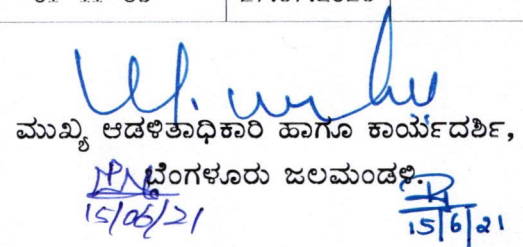 ಮುಖ್ಯ ಆಡಳಿತಾಧಿಕಾರಿ ಹಾಗೂ ಕಾರ್ಯದರ್ಶಿ,
ಬೆಂಗಳೂರು ಜಲಮಂಡಳಿ.
15/06/21 15/6/21